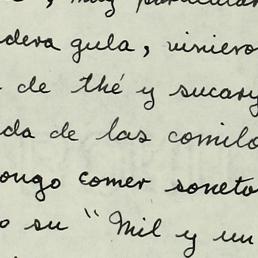 , muy particular
dera gula, viniero
de thé y sucary
da de las comilo
ongo comer soneto
o su "Mil y un